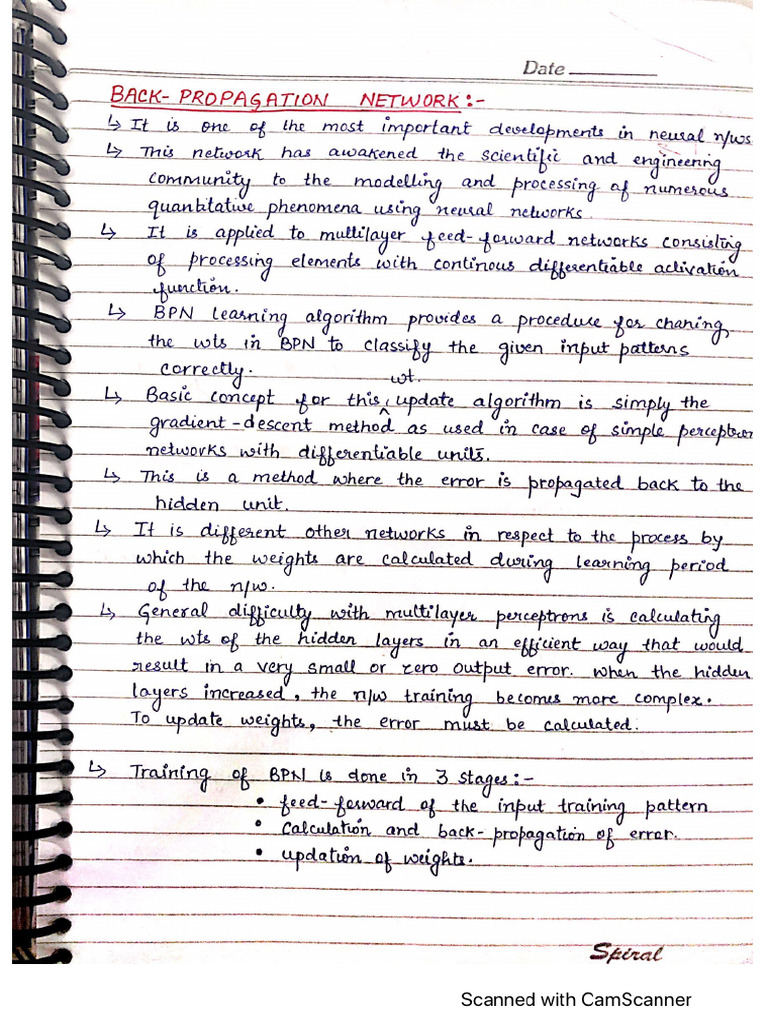 Date
BACK-PROPAGATION NETWORK:-
↳ It is one of the most important developments in neural n/ws
↳ This network has awakened the scientific and engineering
community to the modelling and processing of numerous
quantitative phenomena using neural networks.
↳ It is applied to multilayer feed-forward networks consisting
of processing elements with continous differentiable activation
function.
↳ BPN learning algorithm provides a procedure for chaning,
the wts in BPN to classify the given input patterns
correctly.
↳ Basic concept for this wt. update algorithm is simply the
gradient-descent method as used in case of simple perceptron
networks with differentiable units.
↳ This is a method where the error is propagated back to the
hidden unit.
↳ It is different other networks in respect to the process by
which the weights are calculated during learning period
of the n/w.
↳ General difficulty with multilayer perceptrons is calculating
the wts of the hidden layers in an efficient way that would
result in a very small or zero output error. when the hidden
layers increased, the n/w training becomes more complex.
To update weights, the error must be calculated.
↳ Training of BPN is done in 3 stages:-
• feed-forward of the input training pattern
• calculation and back-propagation of error.
• updation of weights.
Spiral
Scanned with CamScanner